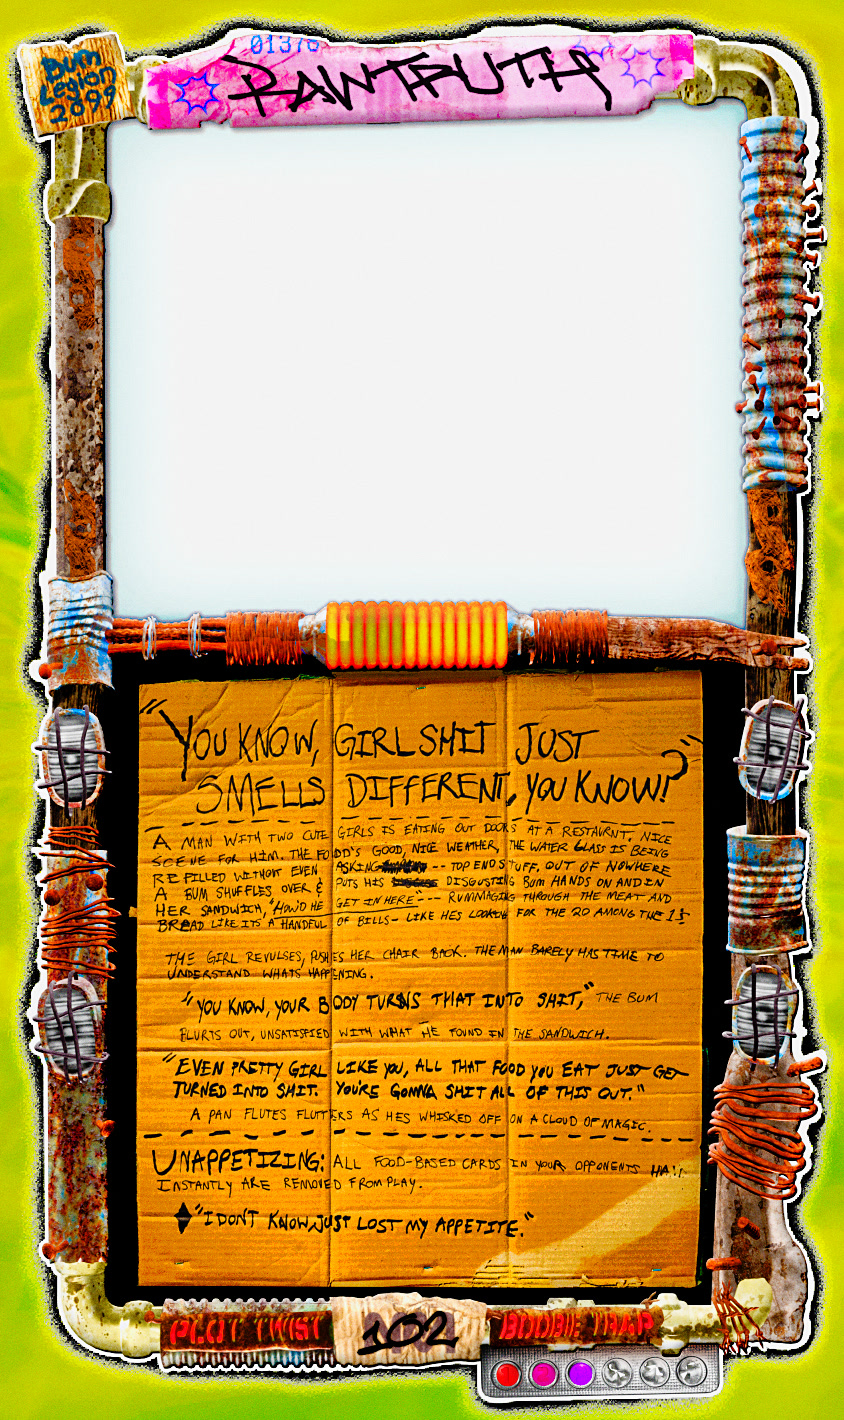 01376
Bum
Legion
2099
RAWTRUTH
"YOU KNOW, GIRL SHIT JUST
SMELLS DIFFERENT, YOU KNOW!?"
A MAN WITH TWO CUTE GIRLS IS EATING OUT DOORS AT A RESTAURNT. NICE
SCENE FOR HIM. THE FOOD'S GOOD, NICE WEATHER, THE WATER GLASS IS BEING
REFILLED WITHOUT EVEN ASKING -- TOP END STUFF. OUT OF NOWHERE
A BUM SHUFFLES OVER & PUTS HIS DISGUSTING BUM HANDS ON AND IN
HER SANDWICH, "HOW'D HE GET IN HERE --- RUMMAGING THROUGH THE MEAT AND
BREAD LIKE ITS A HANDFUL OF BILLS - LIKE HES LOOKIN FOR THE 20 AMONG THE 1s
THE GIRL REVULSES, PUSHES HER CHAIR BACK. THE MAN BARELY HAS TIME TO
UNDERSTAND WHATS HAPPENING.
"YOU KNOW, YOUR BODY TURNS THAT INTO SHIT," THE BUM
BLURTS OUT, UNSATISFIED WITH WHAT HE FOUND IN THE SANDWICH.
"EVEN PRETTY GIRL LIKE YOU, ALL THAT FOOD YOU EAT JUST GET
TURNED INTO SHIT. YOU'RE GONNA SHIT ALL OF THIS OUT."
A PAN FLUTES FLUTTERS AS HES WHISKED OFF ON A CLOUD OF MAGIC.
UNAPPETIZING: ALL FOOD-BASED CARDS IN YOUR OPPONENTS
INSTANTLY ARE REMOVED FROM PLAY.
"I DONT KNOW, JUST LOST MY APPETITE."
PLOT TWIST
102
BOOBIE TRAP